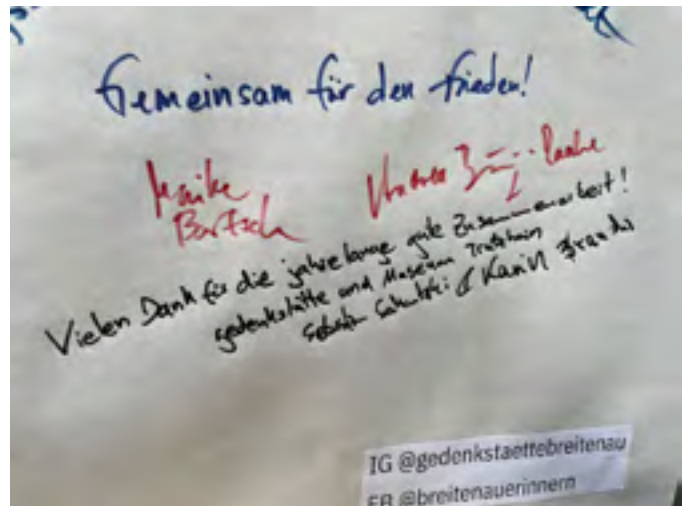 Gemeinsam für den Frieden!
Maike
Bartsch
Vielen Dank für die jahrelange gute Zusammenarbeit!
gedenkstätte und Museum Trutzhain
Karin Brandes
IG @gedenkstaettebreitenau
FB @breitenauerinnern